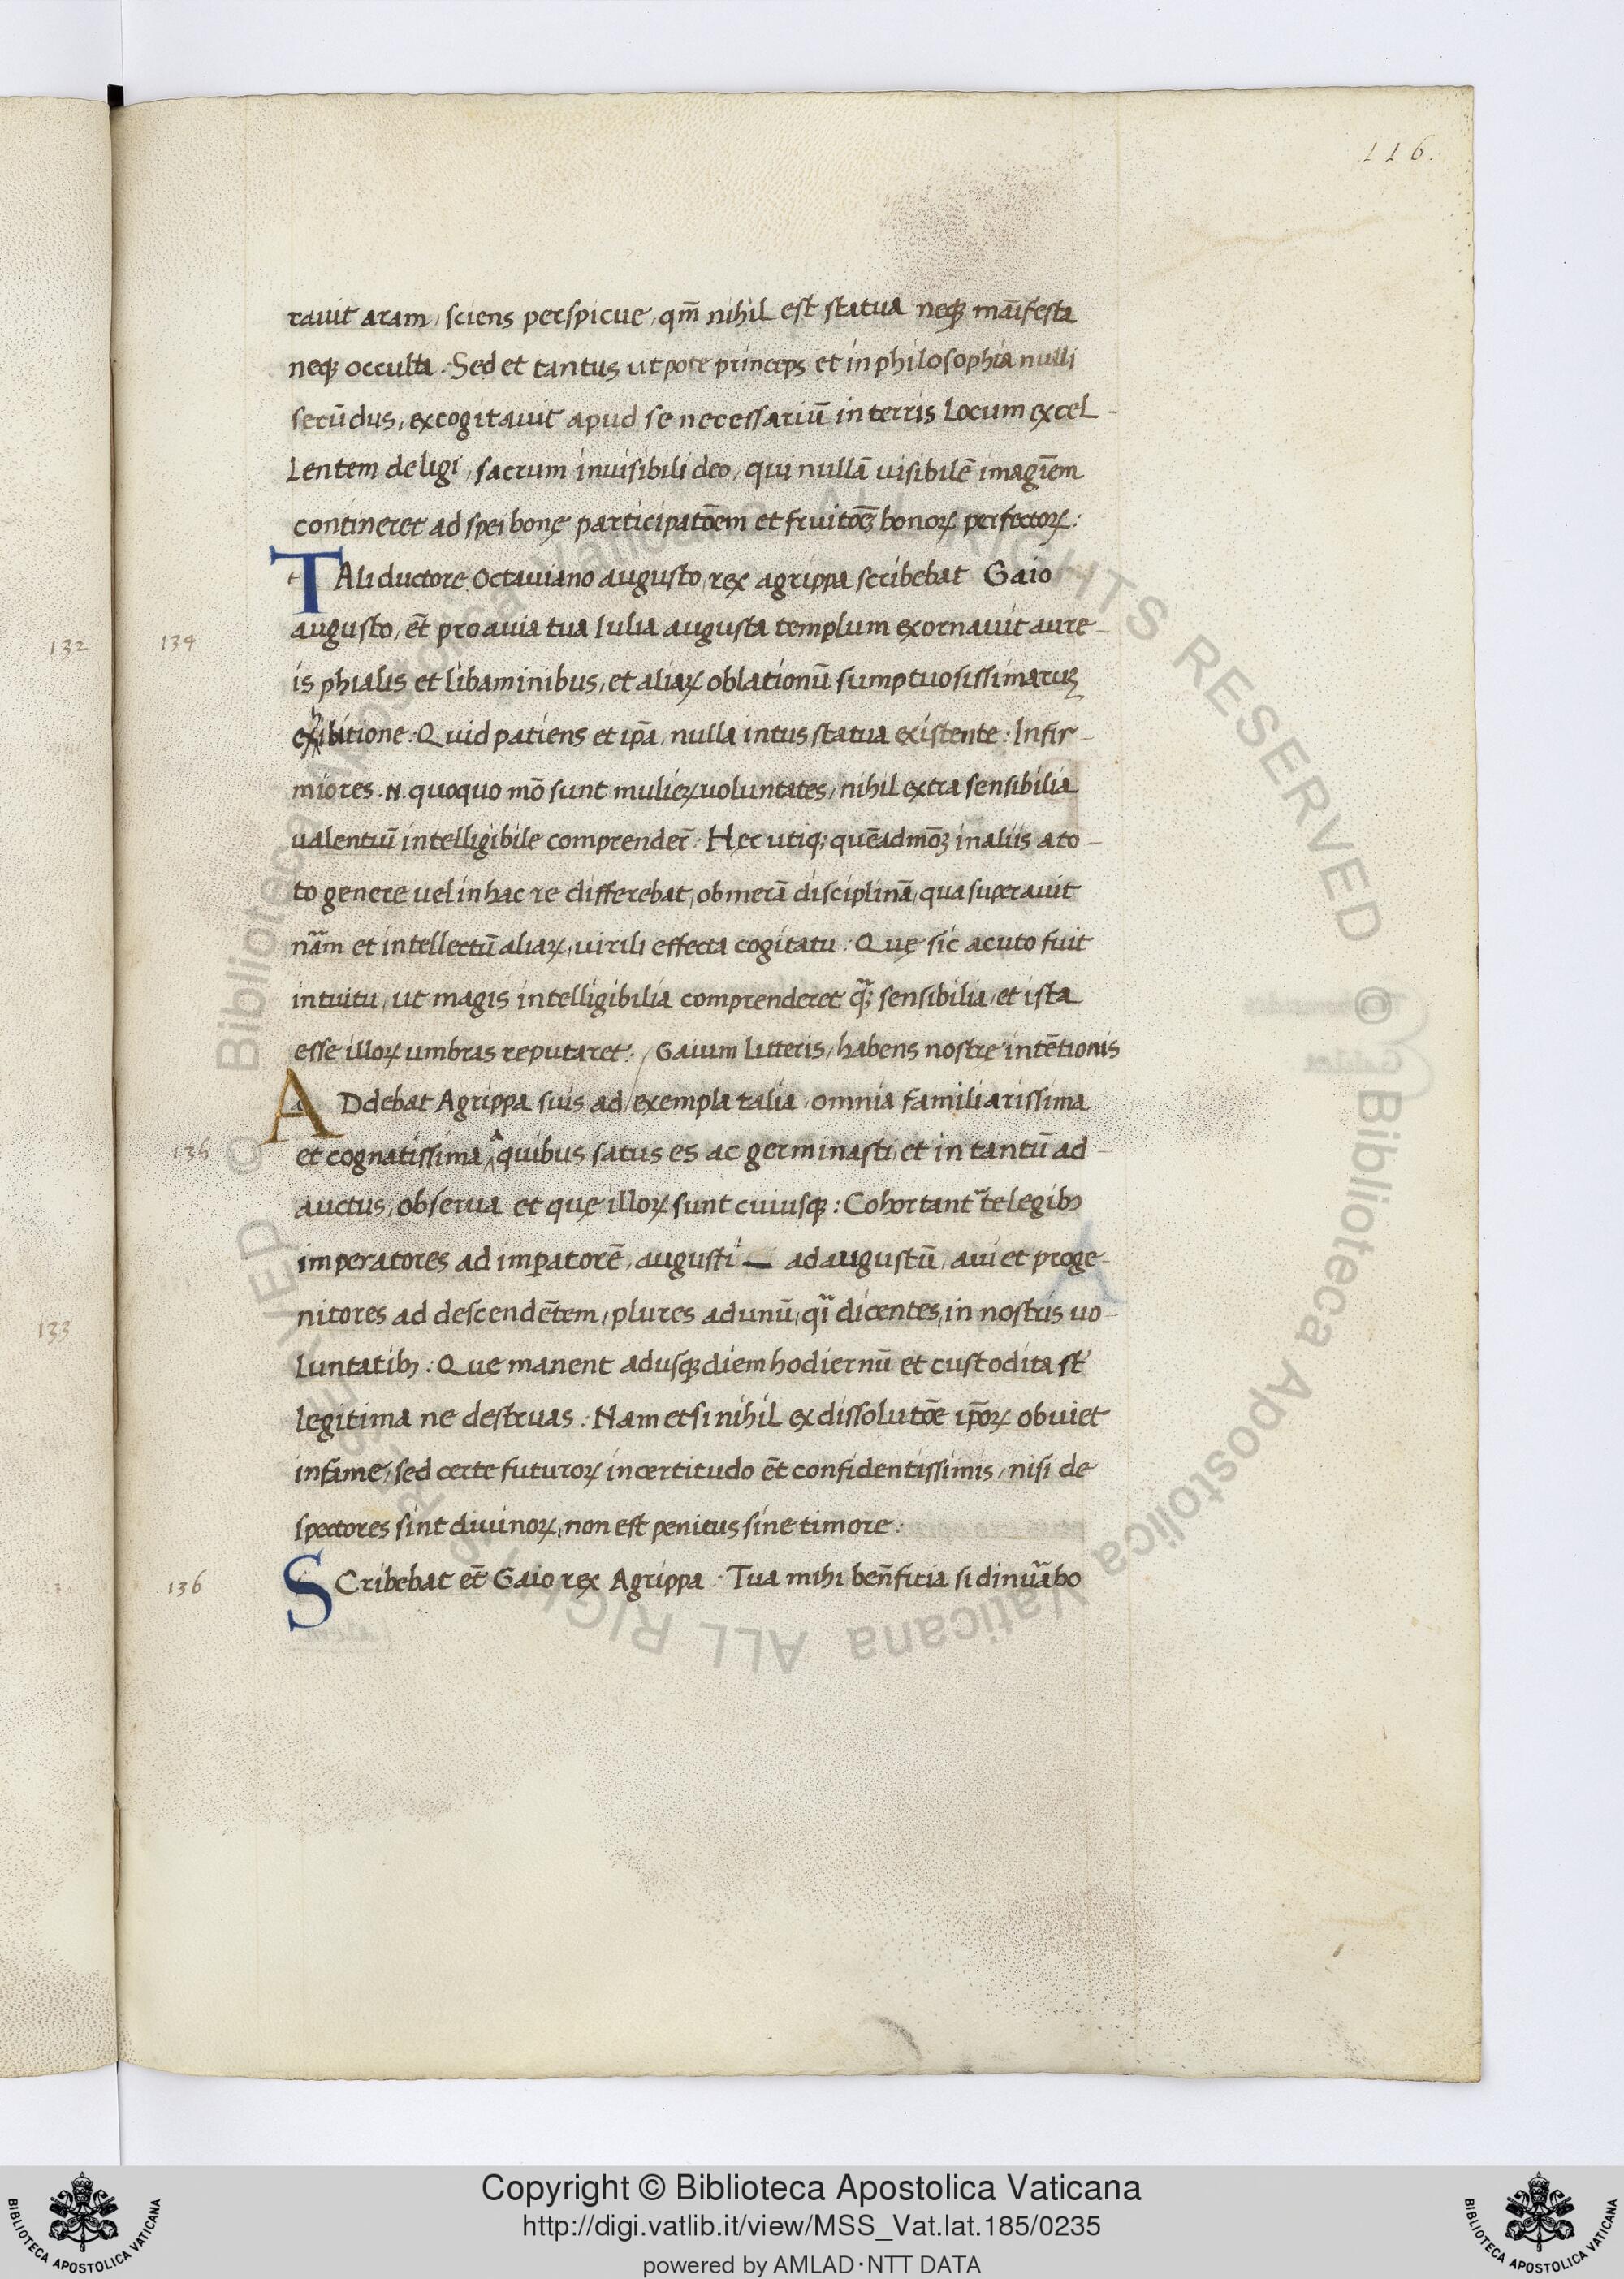 116.
rauit aram, sciens perspicue, qm̄ nihil est statua neqꝫ maīfesta
neqꝫ occulta. Sed et tantus ut pote princeps et in philosophia nulli
secūdus, excogitauit apud se necessariū in terris locum excel-
lentem deligi, sacrum inuisibili deo, qui nullā uisibilē imagīem
contineret ad spei bonę participatōem et fruitōeꝫ bonoꝝ perfectoꝝ:
TAli ductore Octauiano augusto, rex agrippa scribebat Gaio
134
augusto, et̄ proauia tua Iulia augusta templum exornauit aure-
is phialis et libaminibus, et aliaꝝ oblationū sumptuosissimaruꝫ
exhibitione: Quid patiens et ip̄a, nulla intus statua existente: Infir-
miores .N. quoquo mō sunt mulieꝝ uoluntates, nihil extra sensibilia
ualentiū intelligibile comprender̄: Hęc utiqꝫ quēadmōꝫ in aliis a to-
to genere uel in hac re differebat, ob merā disciplinā, qua superauit
nãm et intellectū aliaꝝ, uirili effecta cogitatu: Quę sic acuto fuit
intuitu, ut magis intelligibilia comprenderet q̃ꝫ sensibilia, et ista
esse illoꝝ umbras reputaret: / Gaium litteris, habens nostrę intētionis
ADdebat Agrippa suis ad / exempla talia, omnia familiarissima
135
et cognatissima, a quibus satus es ac germinasti, et in tantū ad-
auctus, obserua et quę illoꝝ sunt cuiusqꝫ: Cohortant᷑ te legibꝫ
imperatores ad imp̱atorē, augusti — ad augustū, aui et proge-
nitores ad descendētem, plures ad unū, q̃i dicentes, in nostris uo-
luntatibꝫ: Que manent adusqꝫ diem hodiernū et custodita st̄
legitima ne destruas: Nam etsi nihil ex dissolutōe ip̄oꝝ obuiet
infame, sed certe futuroꝝ incertitudo et̄ confidentissimis, nisi de
spectores sint diuinoꝝ, non est penitus sine timore:
136
SCribebat et̄ Gaio rex Agrippa: Tua mihi ben̄ficia si dinũabo
132
133
Copyright © Biblioteca Apostolica Vaticana
http://digi.vatlib.it/view/MSS_Vat.lat.185/0235
powered by AMLAD·NTT DATA
BIBLIOTECA APOSTOLICA VATICANA
BIBLIOTECA APOSTOLICA VATICANA
© Biblioteca Apostolica Vaticana ALL RIGHTS RESERVED © Biblioteca Apostolica Vaticana ALL RIGHTS RESERVED